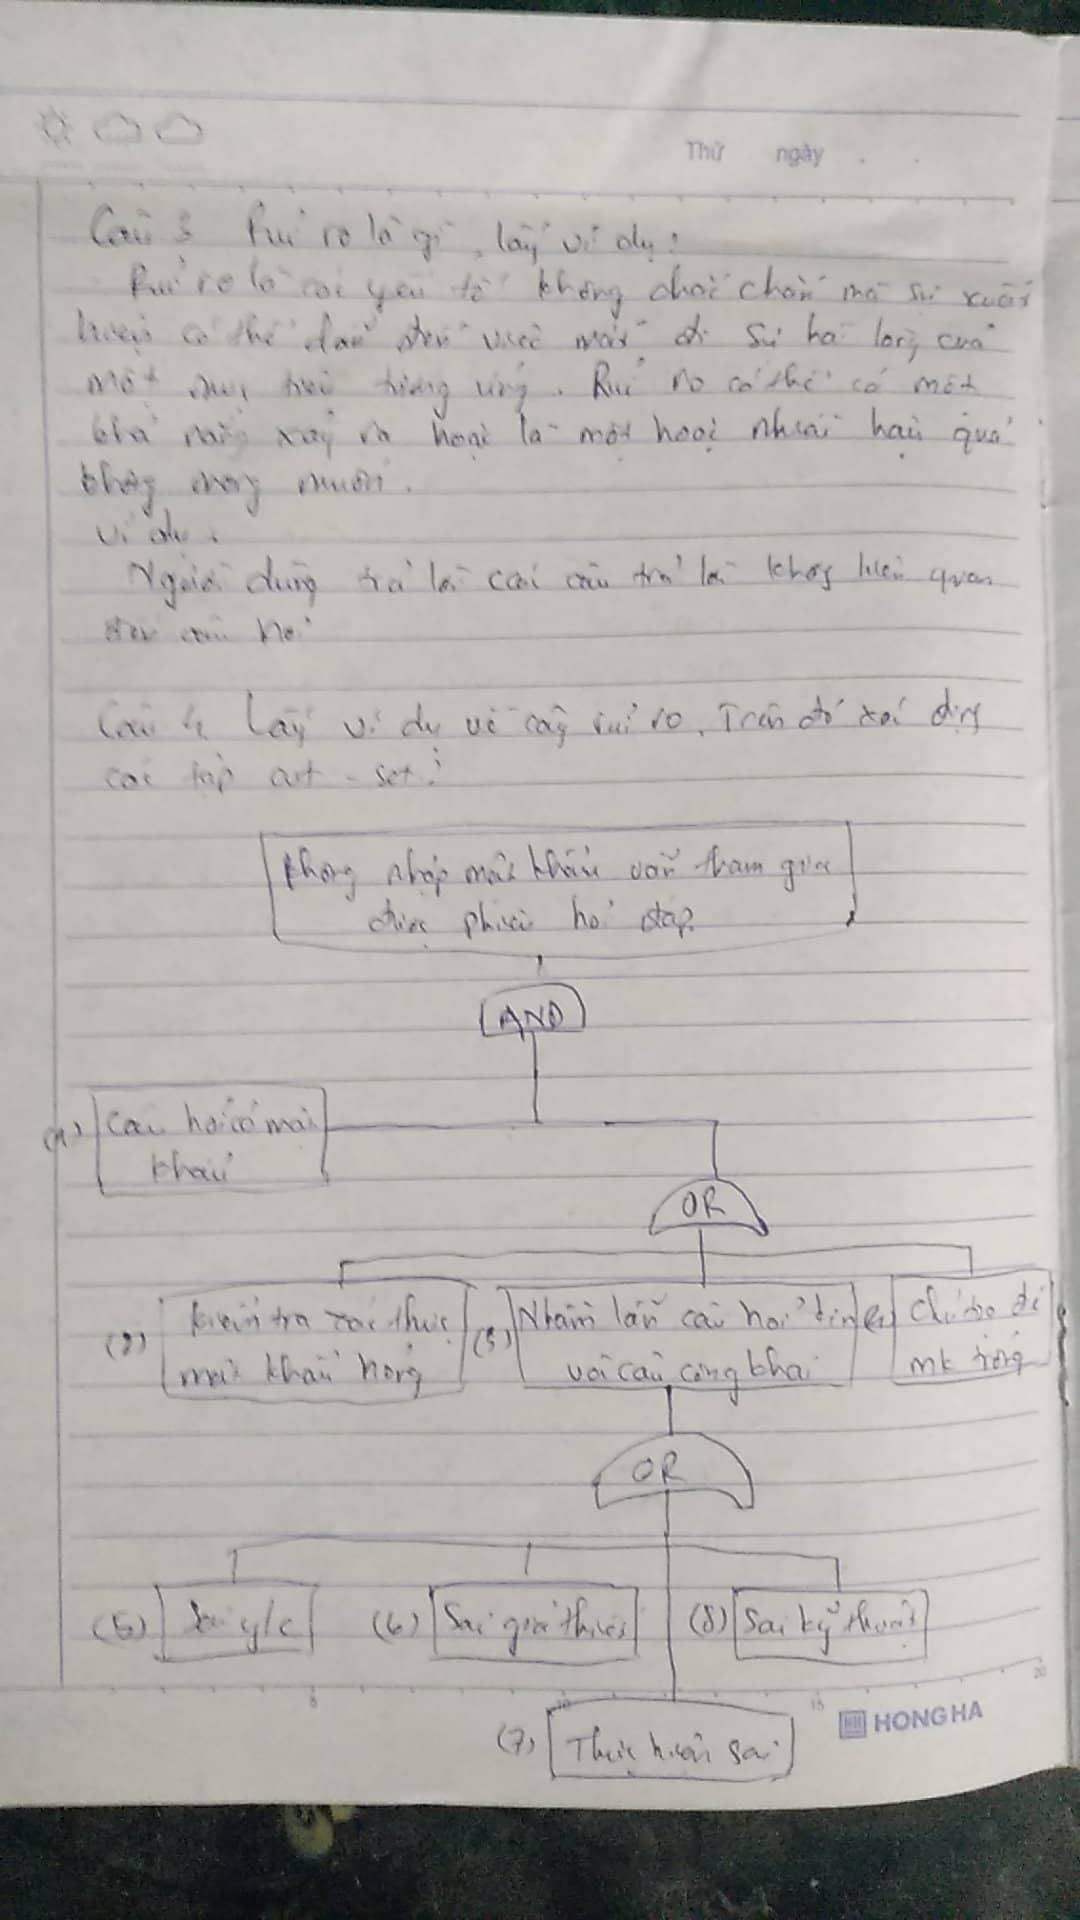 Thứ ngày
Câu 3 Rủi ro là gì, lấy ví dụ?
Rủi ro là các yếu tố không chắc chắn mà sự xuất
hiện có thể dẫn đến việc mất đi sự hài lòng của
một mục tiêu tương ứng. Rủi ro có thể có một
khả năng xảy ra hoặc là một hoặc nhiều hậu quả
không mong muốn.
Ví dụ:
Người dùng trả lời các câu trả lời không liên quan
đến câu hỏi
Câu 4 Lấy ví dụ về cây rủi ro. Trên đó xác định
các tập cut - set?
Không nhập mật khẩu vẫn tham gia
được phiên hỏi đáp.
AND
(1) Câu hỏi có mật
khẩu
OR
(2) Kiểm tra xác thực (3) Nhầm lẫn câu hỏi Chế độ để
mật khẩu hỏng với câu công khai mk trống
OR
(5) Sai y/c (6) Sai giả thiết (8) Sai kỹ thuật
5 10 15 20
HONG HA
(7) Thực hiện sai